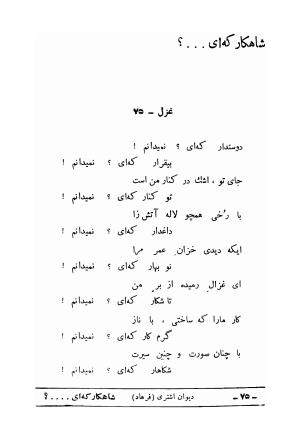 شاهکار که‌ای . . . ؟
غزل – ۷۵
دوستدار که‌ای ؟ نمیدانم !
بیقرار که‌ای ؟ نمیدانم !
جای تو ، اشک در کنار من است
تو کنار که‌ای ؟ نمیدانم !
با رُخی همچو لاله آتش زا
داغدار که‌ای ؟ نمیدانم !
ایکه دیدی خزان عمر مرا
نو بهار که‌ای ؟ نمیدانم !
ای غزال رمیده از بر من
تا شکار که‌ای ؟ نمیدانم !
کار مارا که ساختی ، با ناز
گرم کار که‌ای ؟ نمیدانم !
با چنان صورت و چنین سیرت
شکاهار که‌ای ؟ نمیدانم !
– ۷۵ – دیوان اشتری (فرهاد) شاهکار که‌ای . . . . ؟